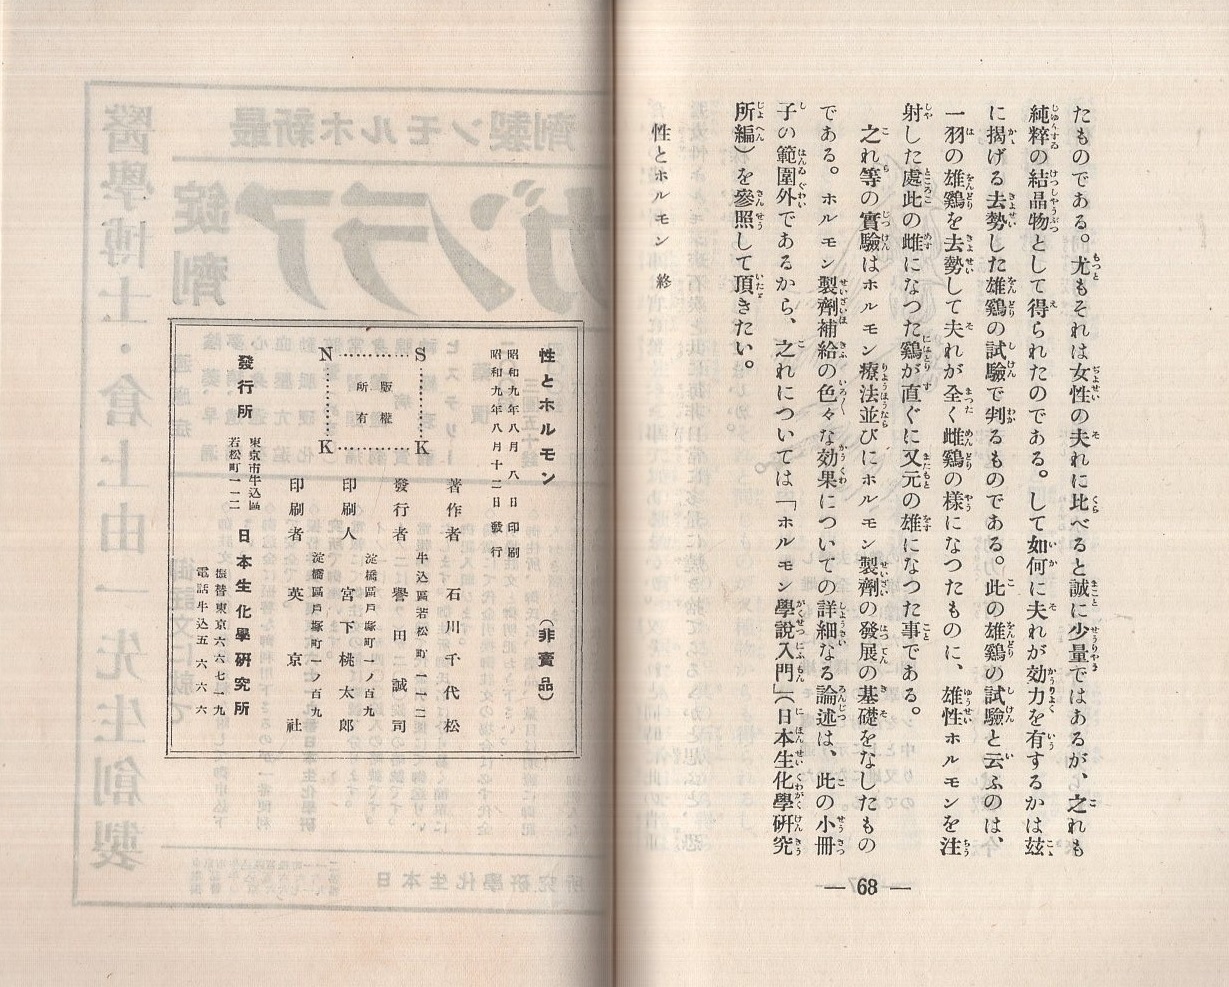 たものである。尤もそれは女性の夫れに比べると誠に少量ではあるが、之れも
純粹の結晶物として得られたのである。して如何に夫れが効力を有するかは玆
に揭げる去勢した雄鷄の試驗で判るものである。此の雄鷄の試驗と云ふのは、
一羽の雄鷄を去勢して夫れが全く雌鷄の樣になつたものに、雄性ホルモンを注
射した處此の雌になつた鷄が直ぐに又元の雄になつた事である。
之れ等の實驗はホルモン療法並びにホルモン製劑の發展の基礎をなしたもの
である。ホルモン製劑補給の色々な効果についての詳細なる論述は、此の小冊
子の範圍外であるから、之れについては「ホルモン學說入門」(日本生化學硏究
所編)を參照して頂きたい。
性とホルモン 終
— 68 —
性とホルモン (非賣品)
昭和九年八月 八 日 印刷
昭和九年八月十二日 發行
S……K
版權
所有
N……K
著作者 石川千代松
牛込區若松町一一二
發行者 譽田誠司
淀橋區戶塚町一ノ百九
印刷人 宮下桃太郎
淀橋區戶塚町一ノ百九
印刷者 英京社
發行所
東京市牛込區
若松町一一二
日本生化學硏究所
振替東京六六七一九
電話牛込五六六六